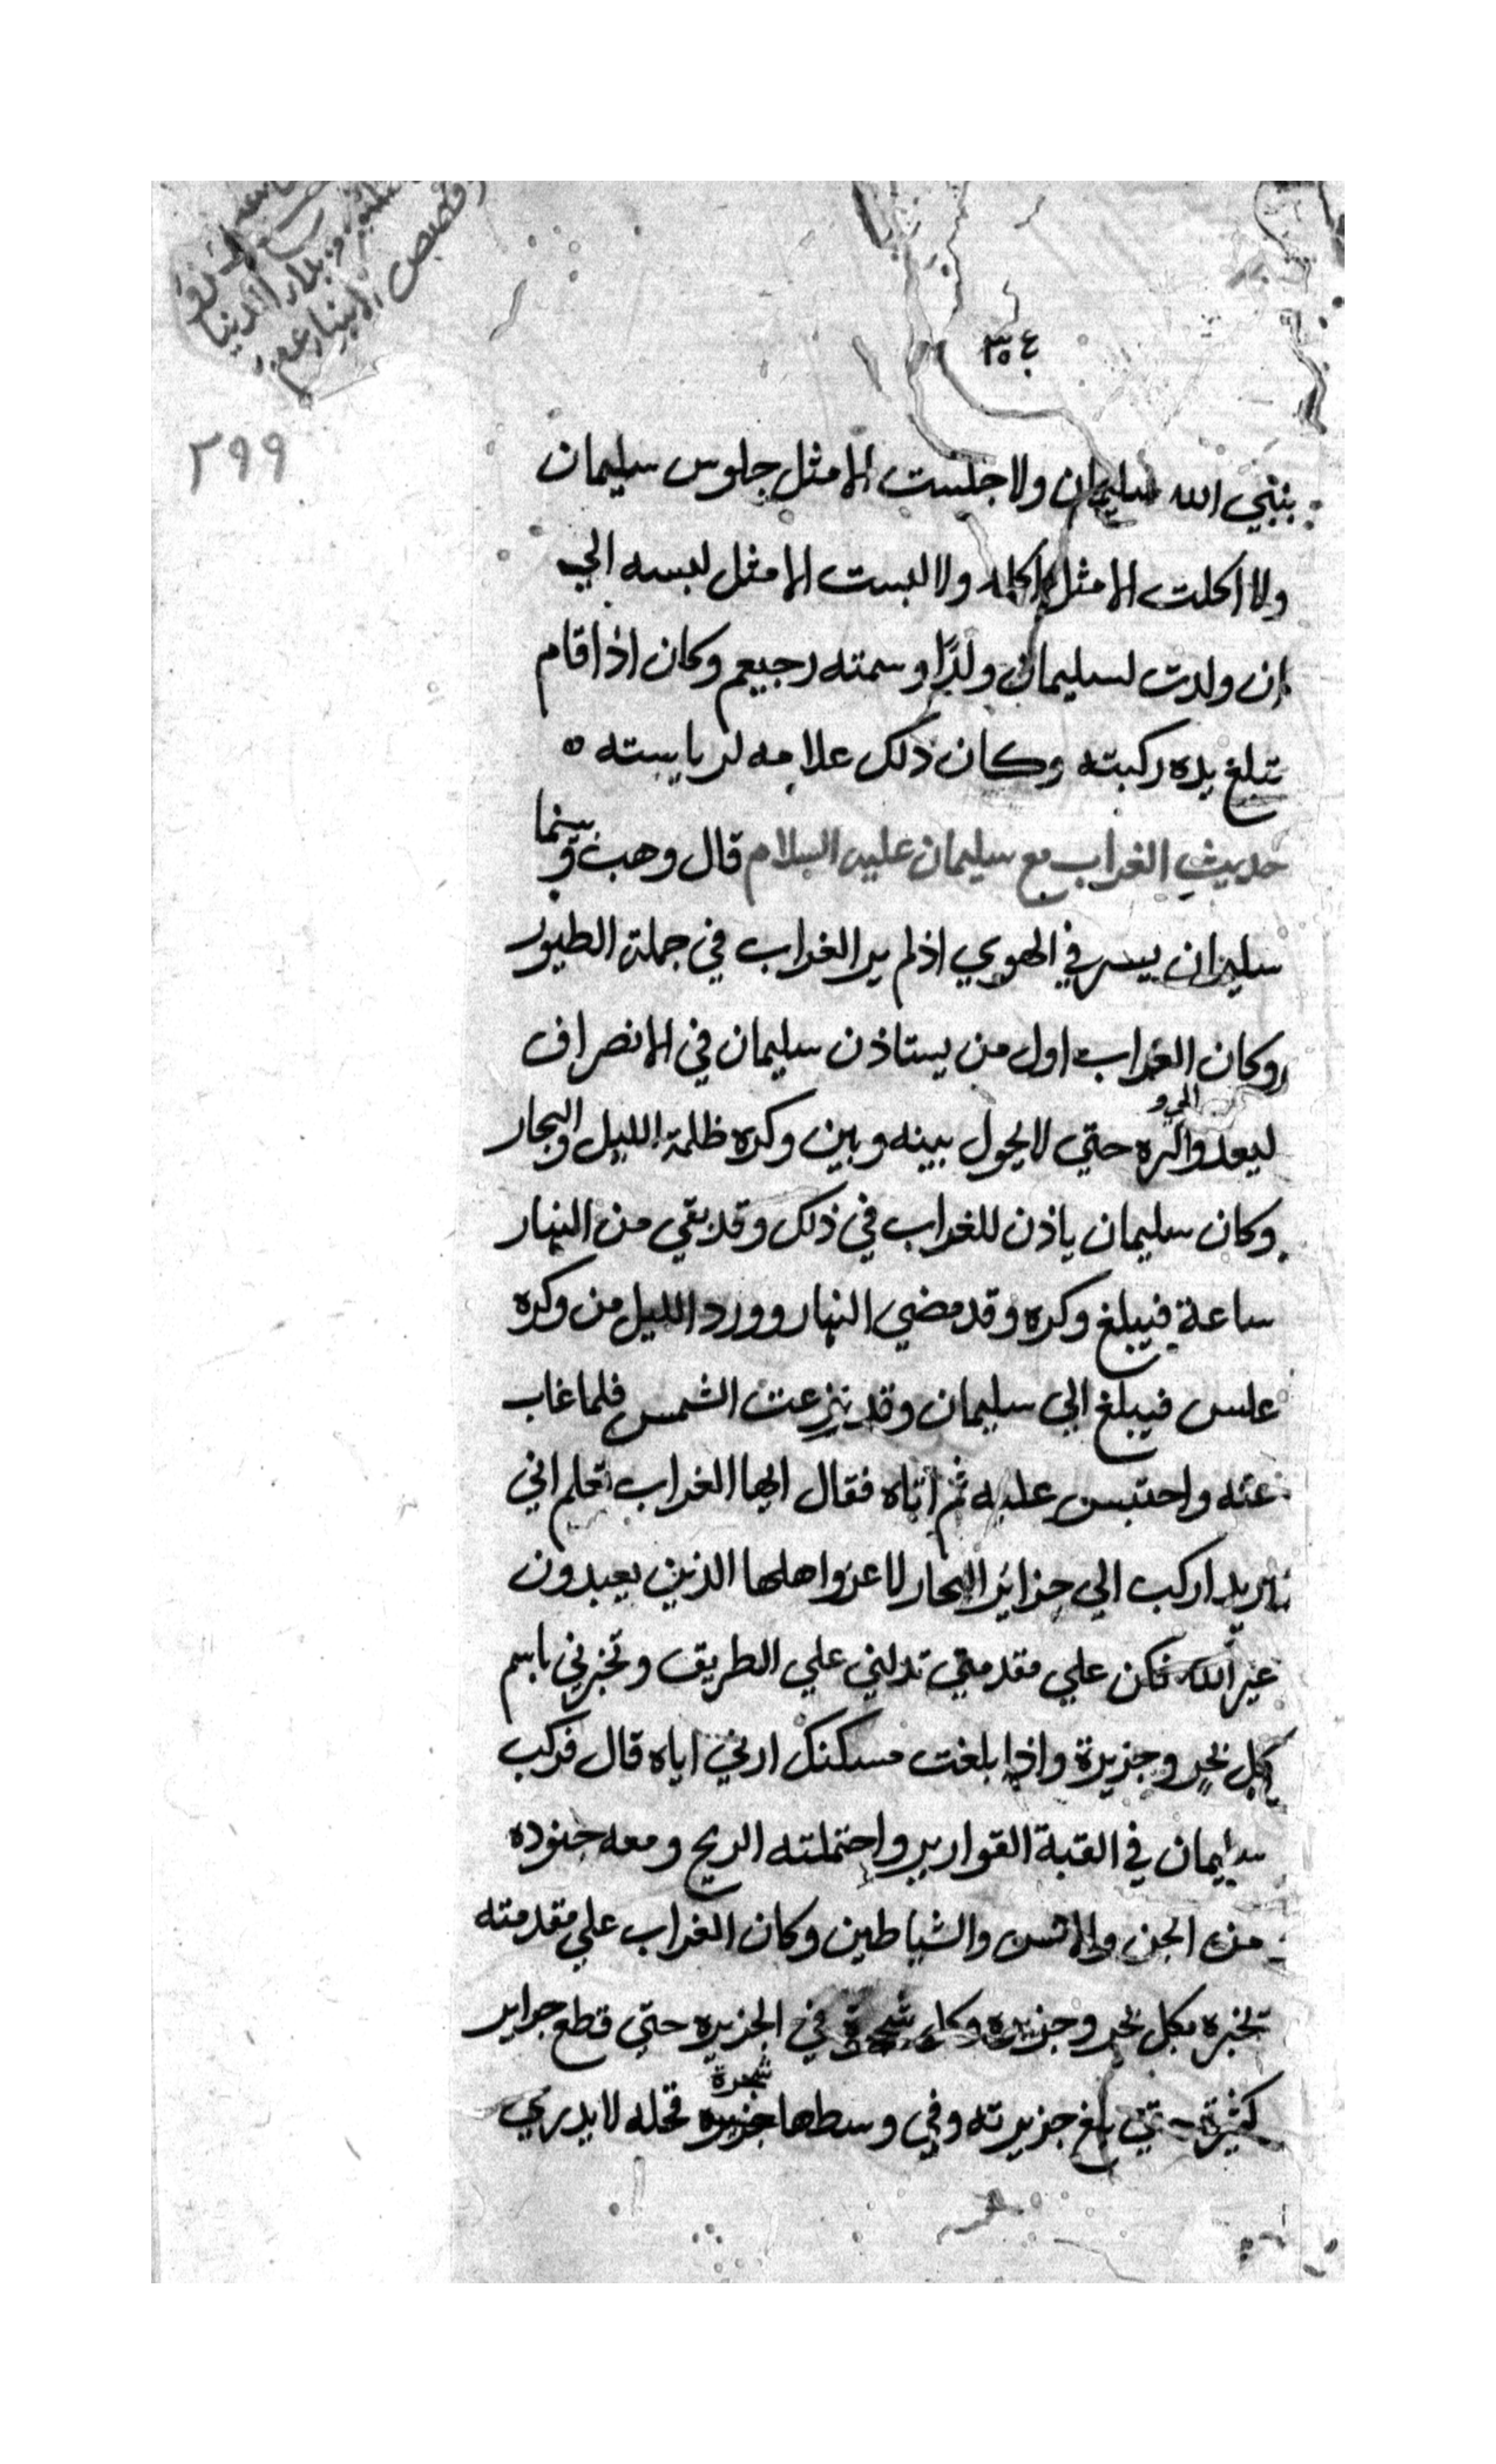 ٣٥٤
٢٩٩
قصص الانبيا
بنبي الله سليمان ولا جلست الا مثل جلوس سليمان
ولا اكلت الا مثل اكله ولا لبست الا مثل لبسه الي
ان ولدت لسليمان ولدًا وسمته رجيعم وكان اذا قام
تبلغ يده ركبته وكان ذلك علامه لرياسته ه
حديث الغراب مع سليمان عليه السلام قال وهب وبينما
سليمان يسير في الهوي اذ لم ير الغراب في جملة الطيور
وكان الغراب اول من يستاذن سليمان في الانصراف
ليعد والره الي و حتي لا يحول بينه وبين وكره ظلمة الليل والبحار
وكان سليمان ياذن للغراب في ذلك وقد بقي من النهار
ساعة فيبلغ وكره وقد مضي النهار وورد الليل من وكره
علس فيبلغ الي سليمان وقد نزعت الشمس فلما غاب
عنه واحتبس عليه ثم اتاه فقال ايها الغراب تعلم اني
اريد اركب الي جزائر البحار لاغزوا اهلها الذين يعبدون
غير الله فكن علي مقدمتي تدلني علي الطريق وتخبرني باسم
كل بحر وجزيرة واذا بلغت مسكنك ارني اياه قال فركب
سليمان في القبة القوارير واحتملته الريح ومعه جنوده
من الجن والانس والشياطين وكان الغراب علي مقدمته
تخبره بكل بحر وجزيره وكل شجرة في الجزيره حتي قطع جزاير
كثيرة حتي بلغ جزيرته وفي وسطها جزيره شجرة قحله لا يدري